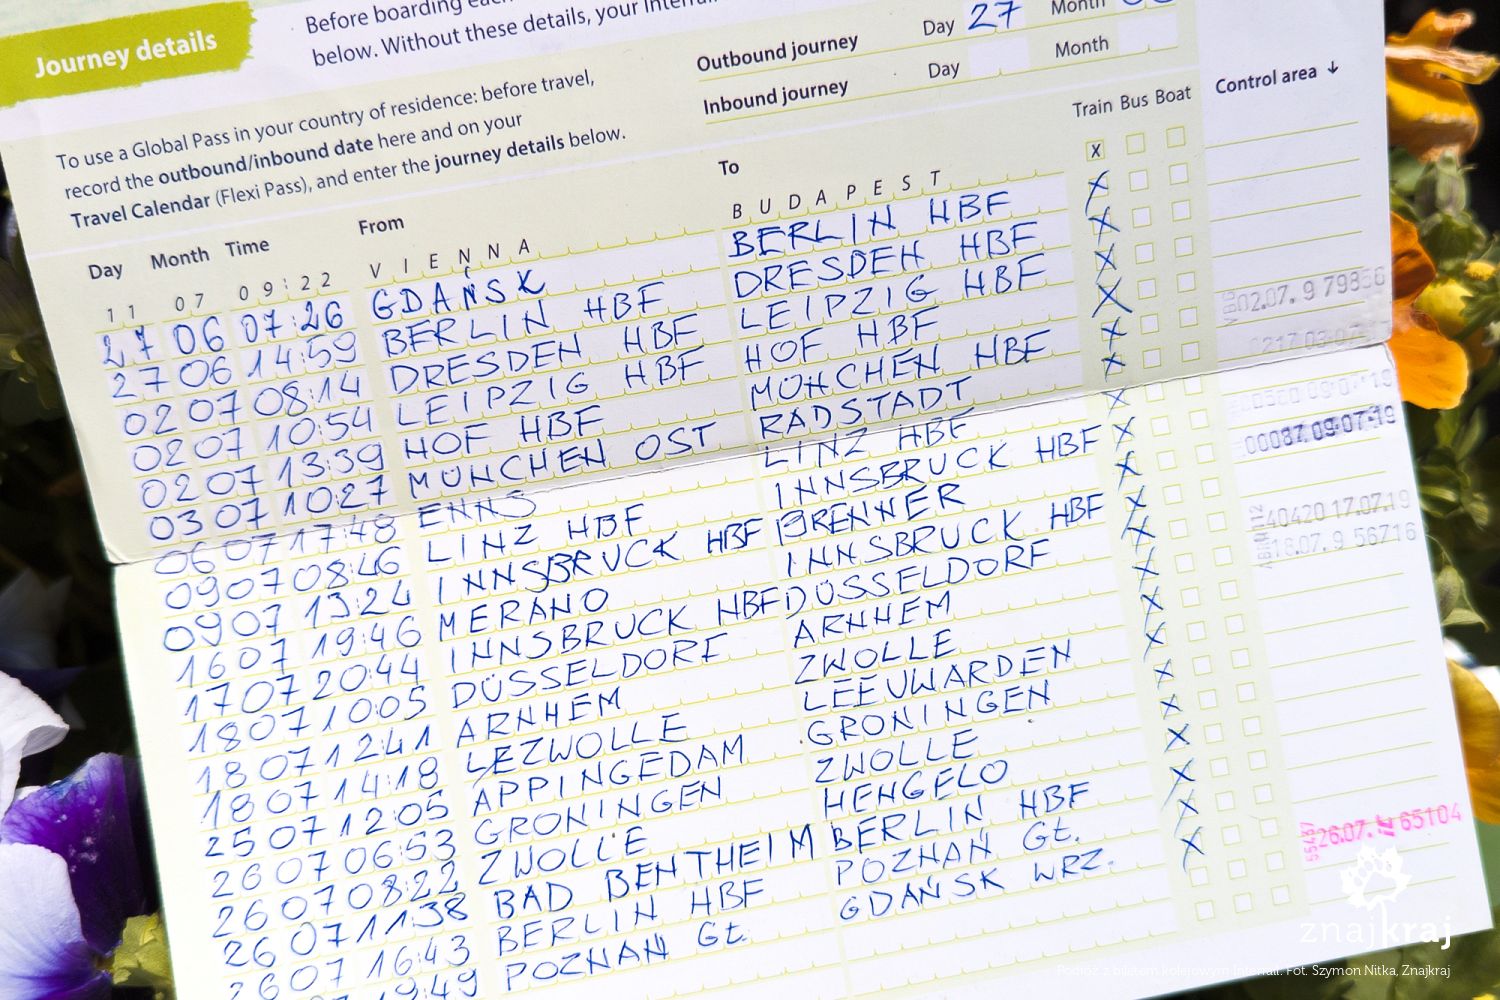 Journey details
Before boarding
below. Without these details, your Interrail
To use a Global Pass in your country of residence: before travel,
record the outbound/inbound date here and on your
Travel Calendar (Flexi Pass), and enter the journey details below.
Outbound journey Day 27 Month
Inbound journey Day Month
Day Month Time From To Train Bus Boat Control area ↓
11 07 09:22 VIENNA BUDAPEST x
27 06 07:26 GDAŃSK BERLIN HBF X
27 06 14:59 BERLIN HBF DRESDEN HBF X
02 07 08:14 DRESDEN HBF LEIPZIG HBF X
02 07 10:54 LEIPZIG HBF HOF HBF X 02.07.9 79856
02 07 13:39 HOF HBF MÜNCHEN HBF X
03 07 10:27 MÜNCHEN OST RADSTADT X
06 07 17:48 ENNS LINZ HBF X
09 07 08:46 LINZ HBF INNSBRUCK HBF X 00087 09.07.19
09 07 13:24 INNSBRUCK HBF BRENNER X
16 07 19:46 MERANO INNSBRUCK HBF X
17 07 20:44 INNSBRUCK HBF DÜSSELDORF X 40420 17.07.19
18 07 10:05 DÜSSELDORF ARNHEM X 18.07.9 56716
18 07 12:41 ARNHEM ZWOLLE X
18 07 14:18 ZWOLLE LEEUWARDEN X
25 07 12:05 APPINGEDAM GRONINGEN X
26 07 06:53 GRONINGEN ZWOLLE X
26 07 08:22 ZWOLLE HENGELO X
26 07 11:38 BAD BENTHEIM BERLIN HBF X
26 07 16:43 BERLIN HBF POZNAŃ Gł. X 26.07. 65104
19:49 POZNAŃ Gł. GDAŃSK WRZ. X
znajkraj
Podróż z biletem kolejowym Interrail. Fot. Szymon Nitka, Znajkraj